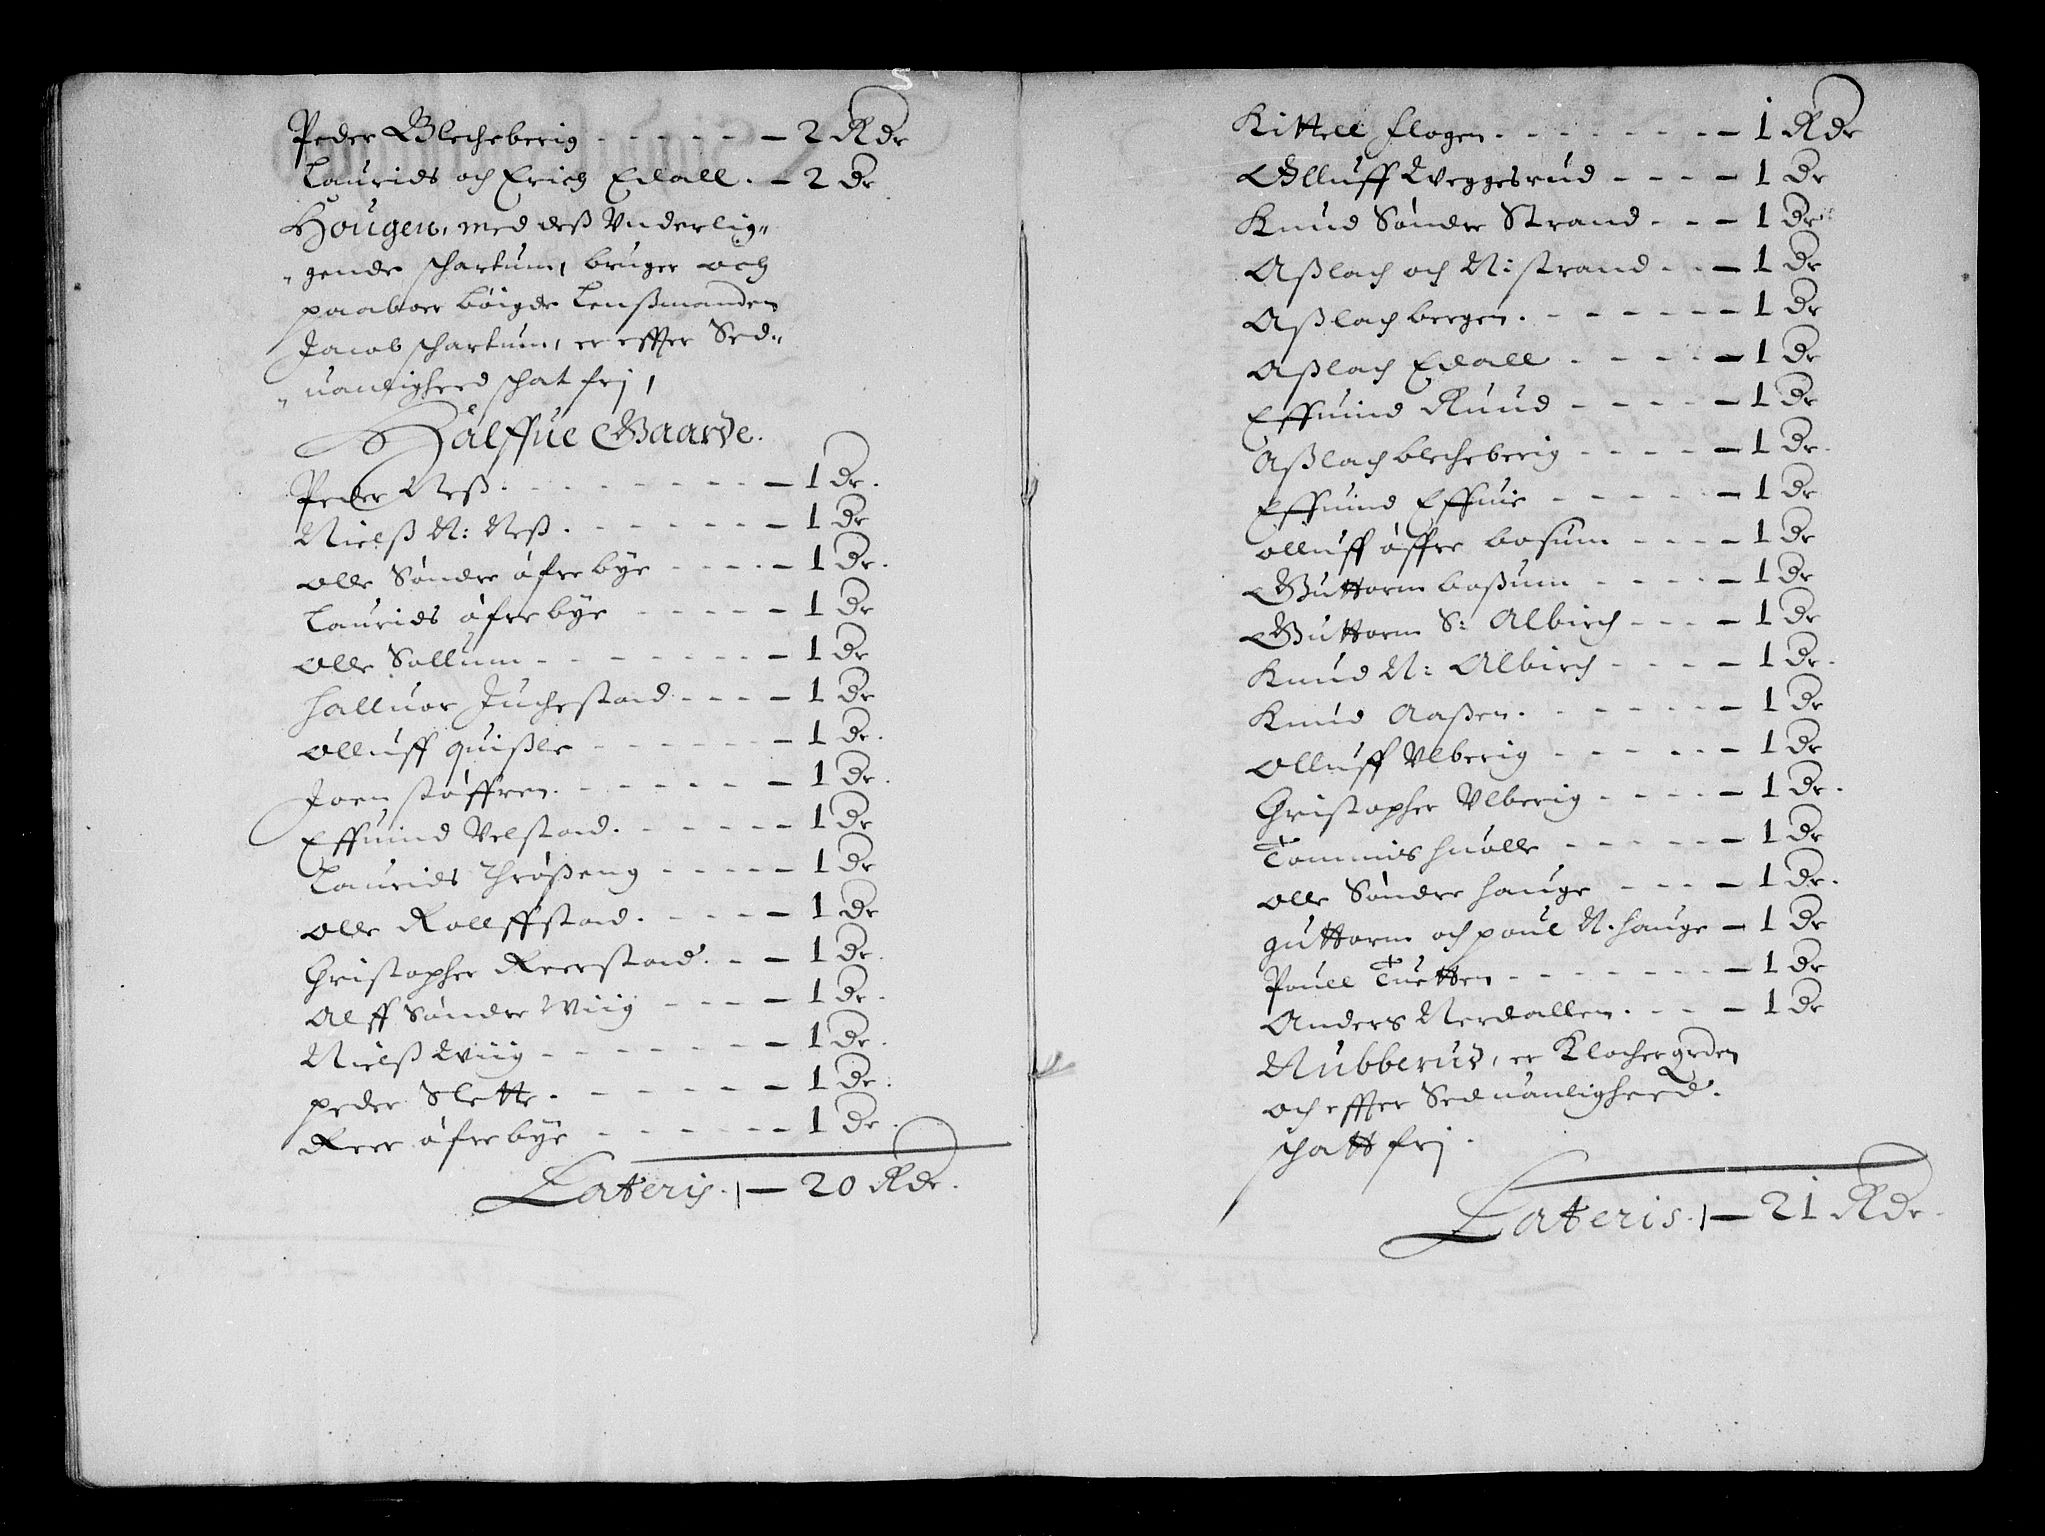 Peder Blecheberig - - - - - - 2 Rdr
Laurids och Erich Edall. - 2 dr
Hougen, med dess Vnderlig„
„gende schartum, bruger och
paaboer bøigde Lenßmanden
Jacob schartum, er effter Sed„
„uanligheed schat frj,
Halffue Gaarde.
Peder Neß. - - - - - - - - 1 dr.
Nielß N: Neß. - - - - - - 1 dr
olle Søndre øfrebye - - - - 1 dr.
Laurids øfrebye - - - - - 1 dr
olle Sollum - - - - - - - 1 dr
Halluor Juchestad - - - - 1 dr
olluff quißle - - - - - - 1 dr.
Joen støffren. - - - - - - 1 dr.
Effuind Velstad. - - - - - 1 dr
Laurids Thrøßeng - - - - - 1 dr
olle Rolffstad. - - - - 1 dr
Christopher Reerstad. - - 1 dr.
Alff Søndre Wiig - - - - 1 dr.
Nielß Wiig - - - - - - - 1 dr.
peder Slette. - - - - - - 1 dr.
Reer øfrebye - - - - - - 1 dr.
Lateris. - 20 Rdr.
Kittell flogen. - - - - - - 1 Rdr
Olluff Weggesrud - - - - 1 dr
Knud Søndre Strand - - - 1 dr
Aßlach och N: strand - - - 1 dr
Aßlach bergen. - - - - - - 1 dr
Aßlach Edall - - - - - 1 dr
Effuind Ruud - - - - - 1 dr
Aßlach blecheberig - - - - 1 dr.
Effuind Effuie - - - - - 1 dr
olluff øffre bosum - - - - 1 dr
Guttorm boßum - - - - - 1 dr
Guttorm S: Albirch - - - - 1 dr
Knud N: Albirch - - - - 1 dr.
Knud Aaßen. - - - - - - 1 dr
olluff Vlberig - - - - - 1 dr
Christopher Vlberig - - - - 1 dr.
Tommis huolle - - - - - 1 dr
olle Søndre hauge - - - - 1 dr.
guttorm och poul N. hauge - 1 dr
Pouell Tuetten - - - - - - 1 dr
Anders Nerdallen. - - - 1 dr
Nubberud, er Klochergrden
och effter Seduanligheed.
schatt frj.
Lateris. - 21 Rdr.